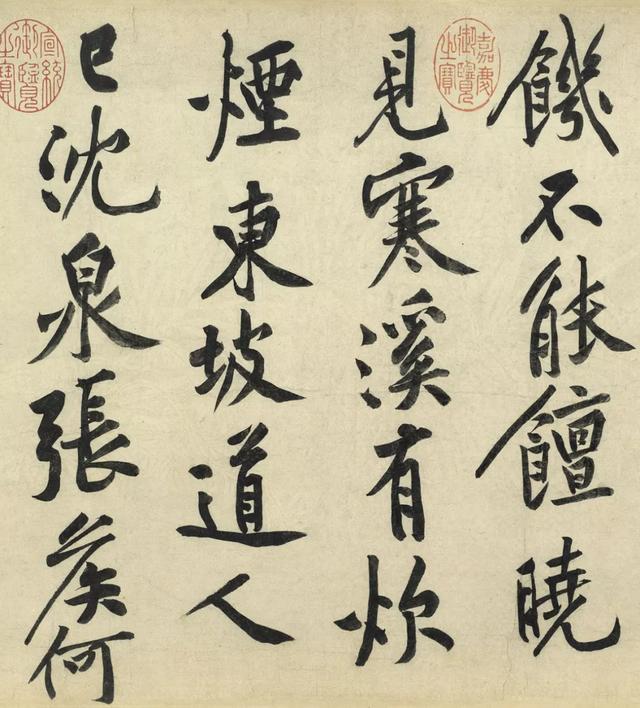 饑不能饘曉
嘉慶御覽之寶
見寒溪有炊
煙東坡道人
已沈泉張侯何
宣統御覽之寶